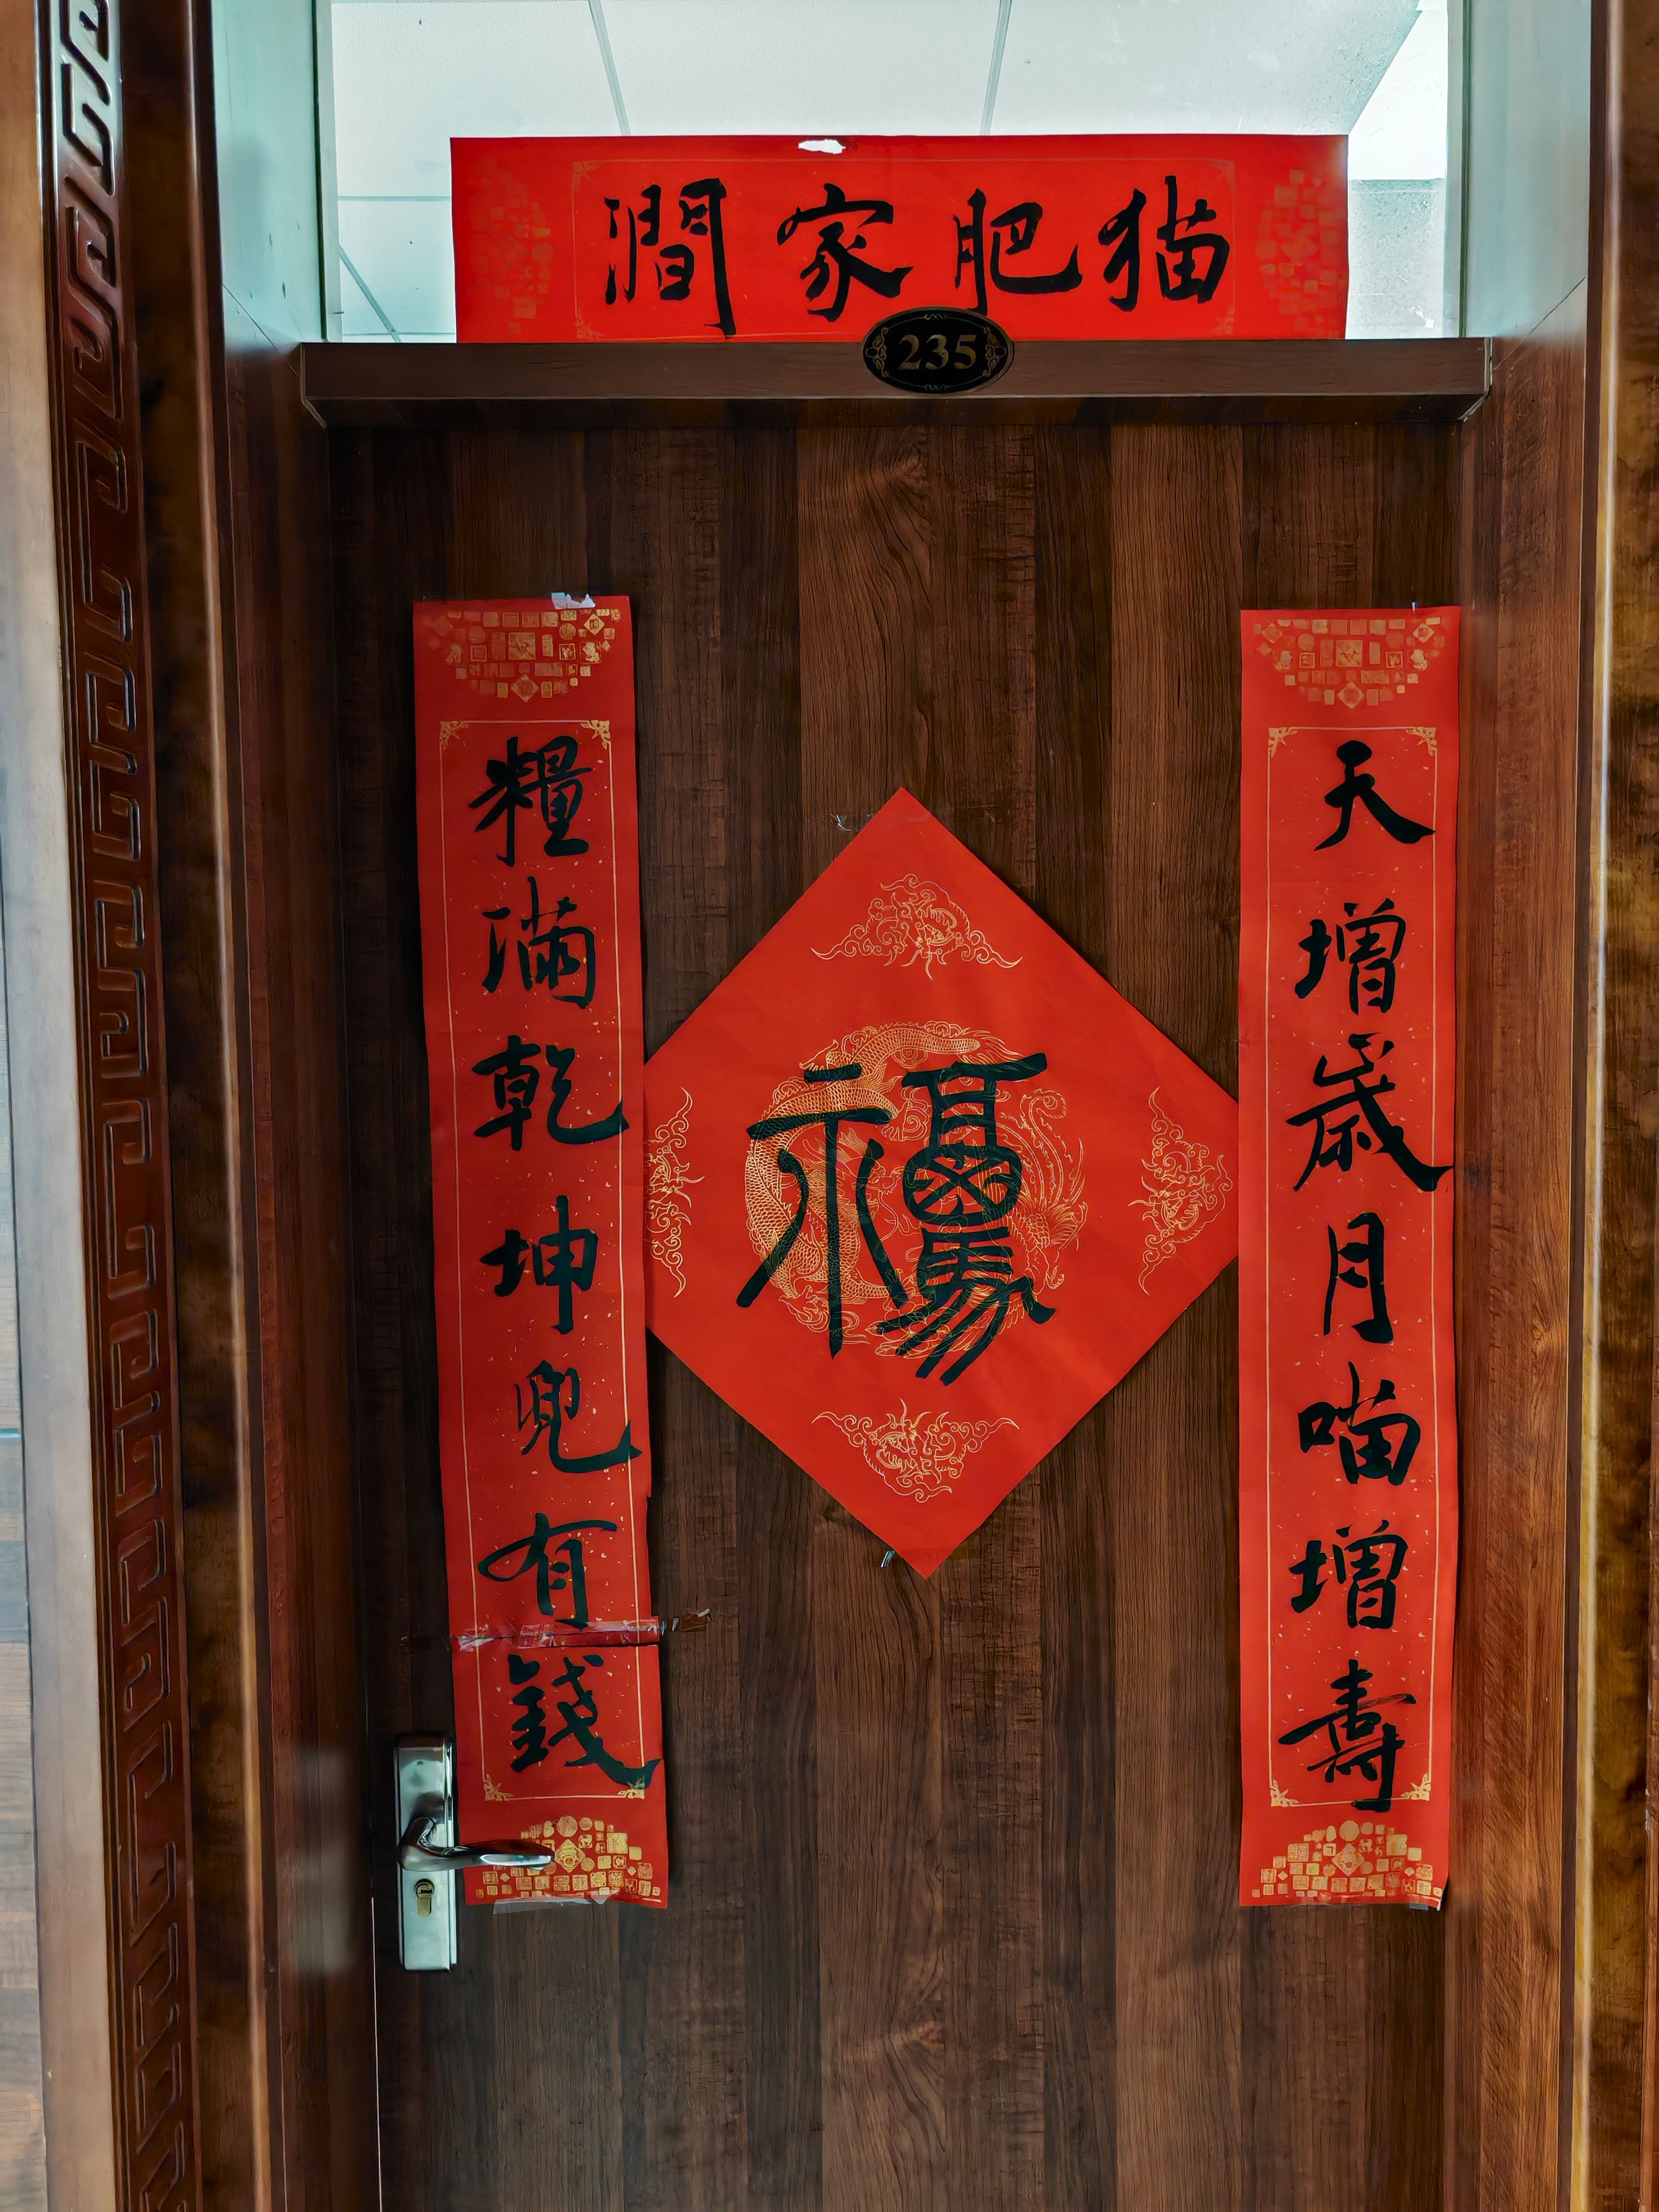 猫肥家澗
235
天增歲月喵增壽
糧滿乾坤兜有錢